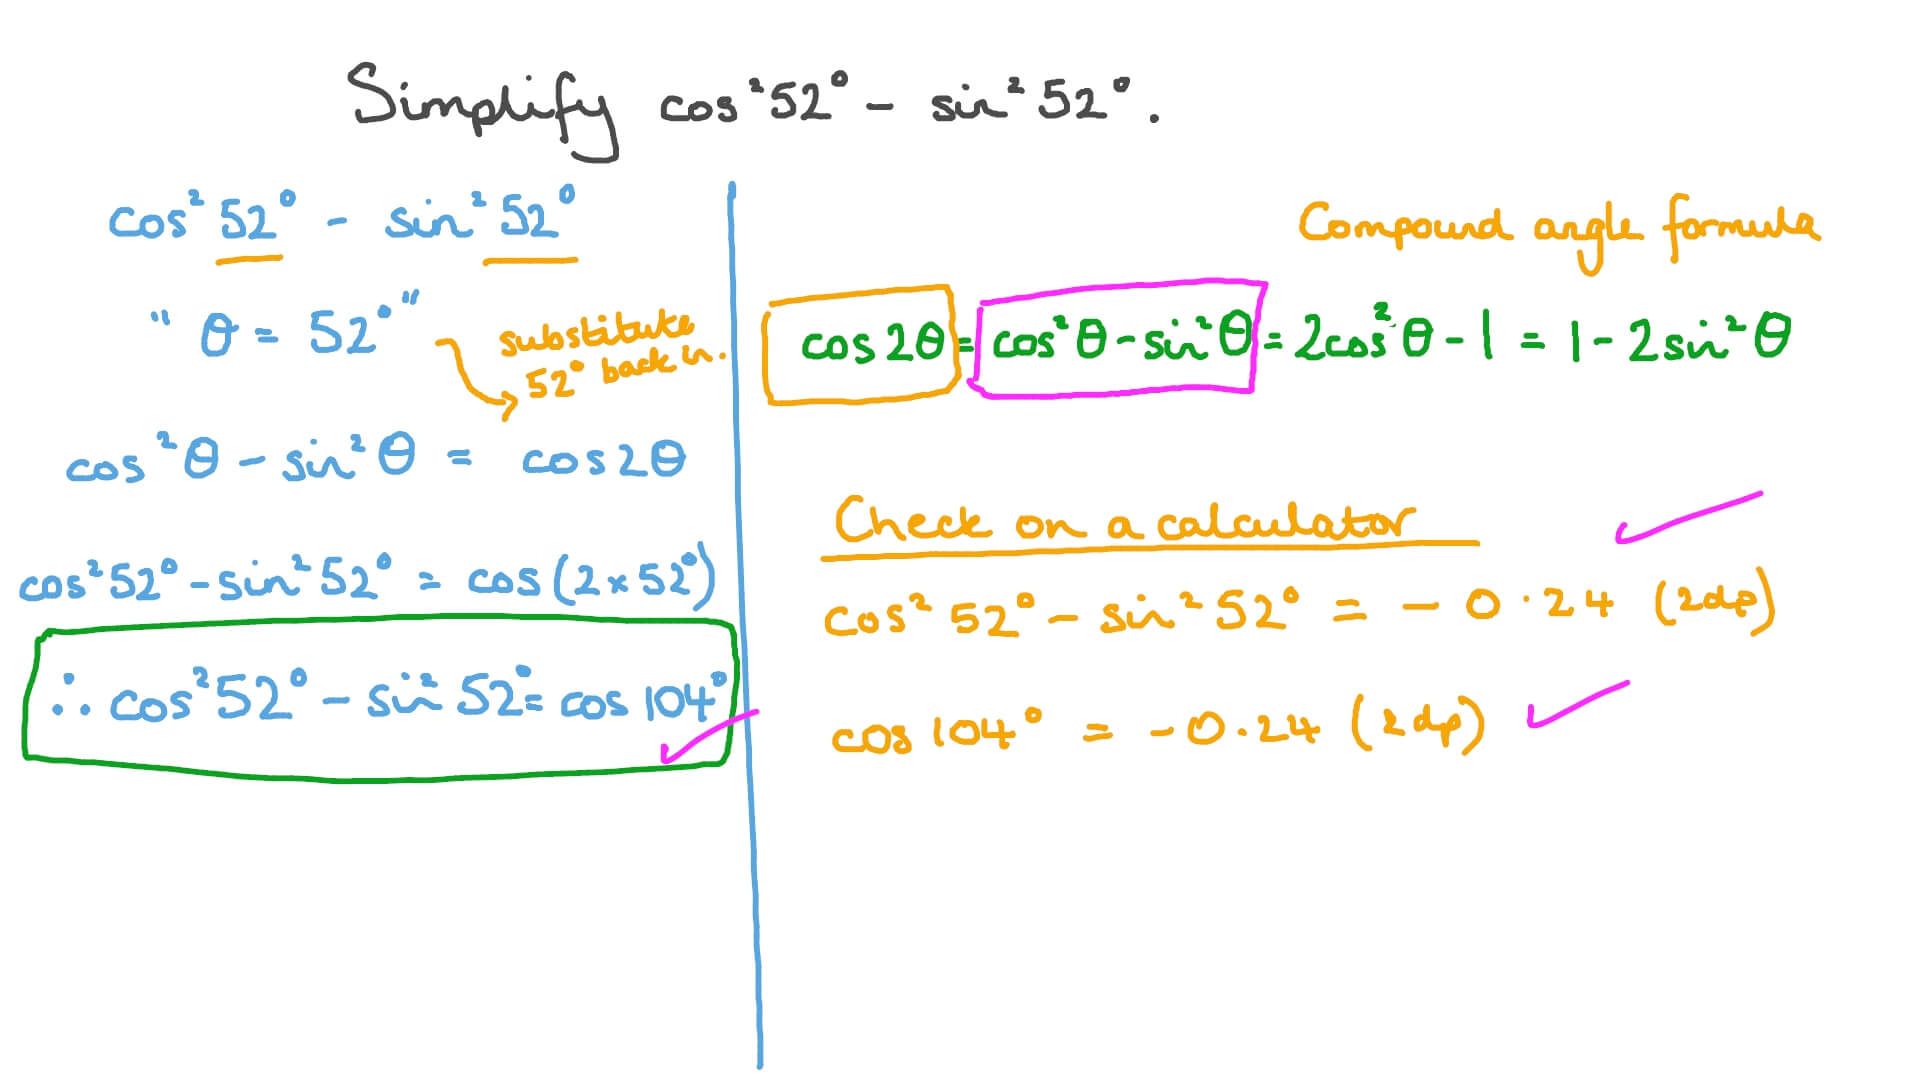 Simplify cos²52° – sin²52°.
cos²52° - sin²52°
"θ = 52°"
substitute
52° back in.
cos²θ - sin²θ = cos2θ
cos²52° - sin²52° = cos(2×52°)
∴ cos²52° - sin²52° = cos 104°
Compound angle formula
cos2θ = cos²θ - sin²θ = 2cos²θ - 1 = 1 - 2sin²θ
Check on a calculator
cos²52° - sin²52° = -0.24 (2dp)
cos 104° = -0.24 (2dp)